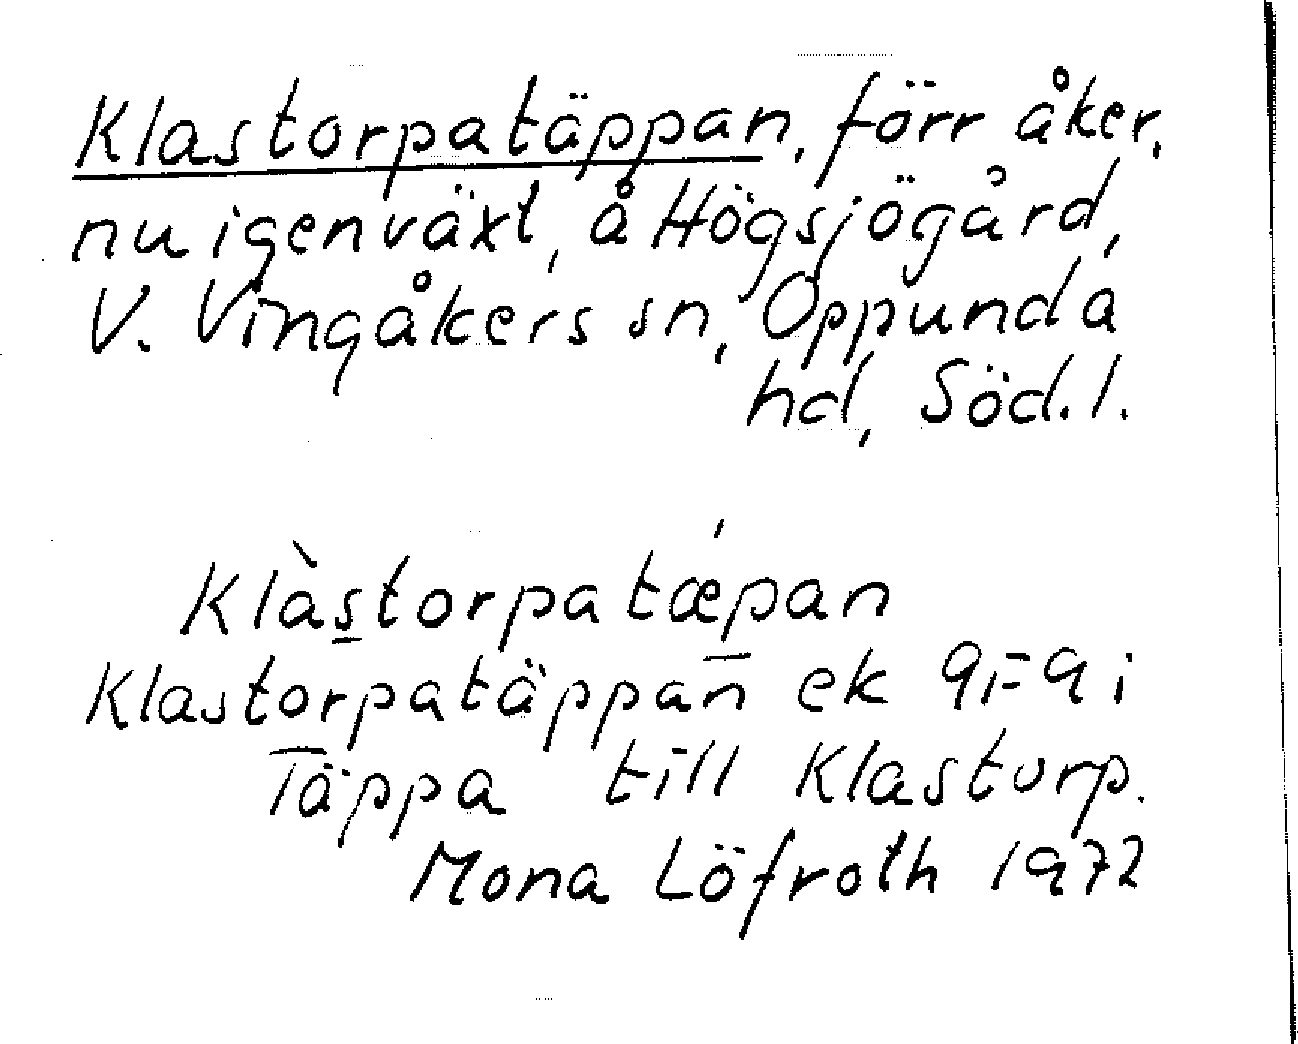 Klastorpatäppan, förr åker,
nu igenväxt, å Högsjögård,
V. Vingåkers sn, Oppunda
hd, Söd.l.
Klàs̲torpatǽp̲an
Klastorpatäppan ek 9i=9i
Täppa till Klastorp.
Mona Löfroth 1972